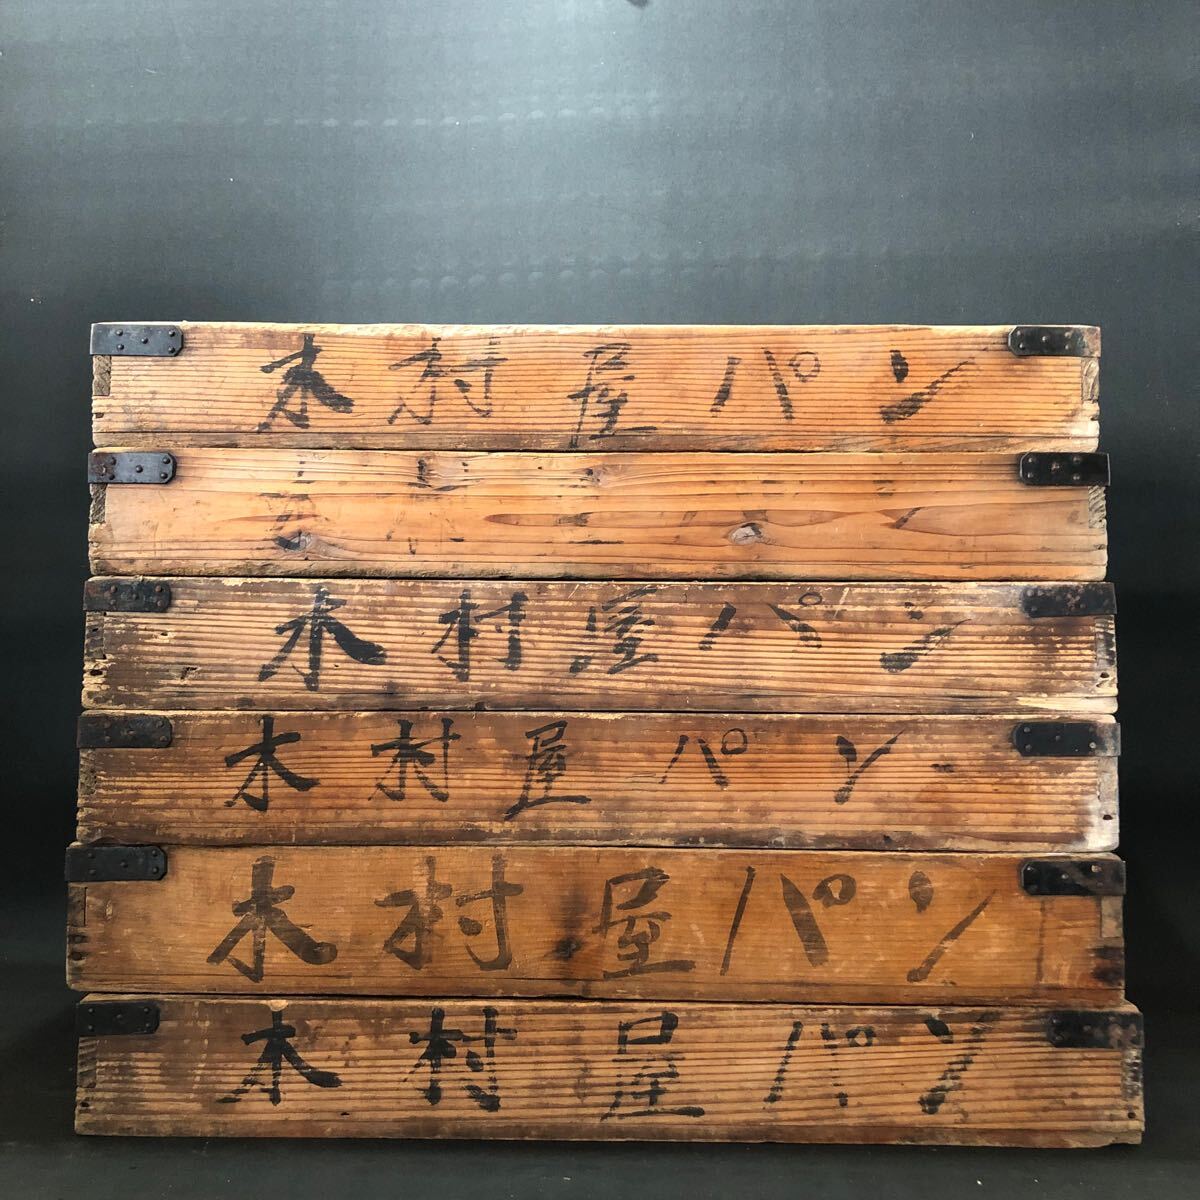 木村屋パン
木村屋パン
木村屋パン
木村屋パン
木村屋パン